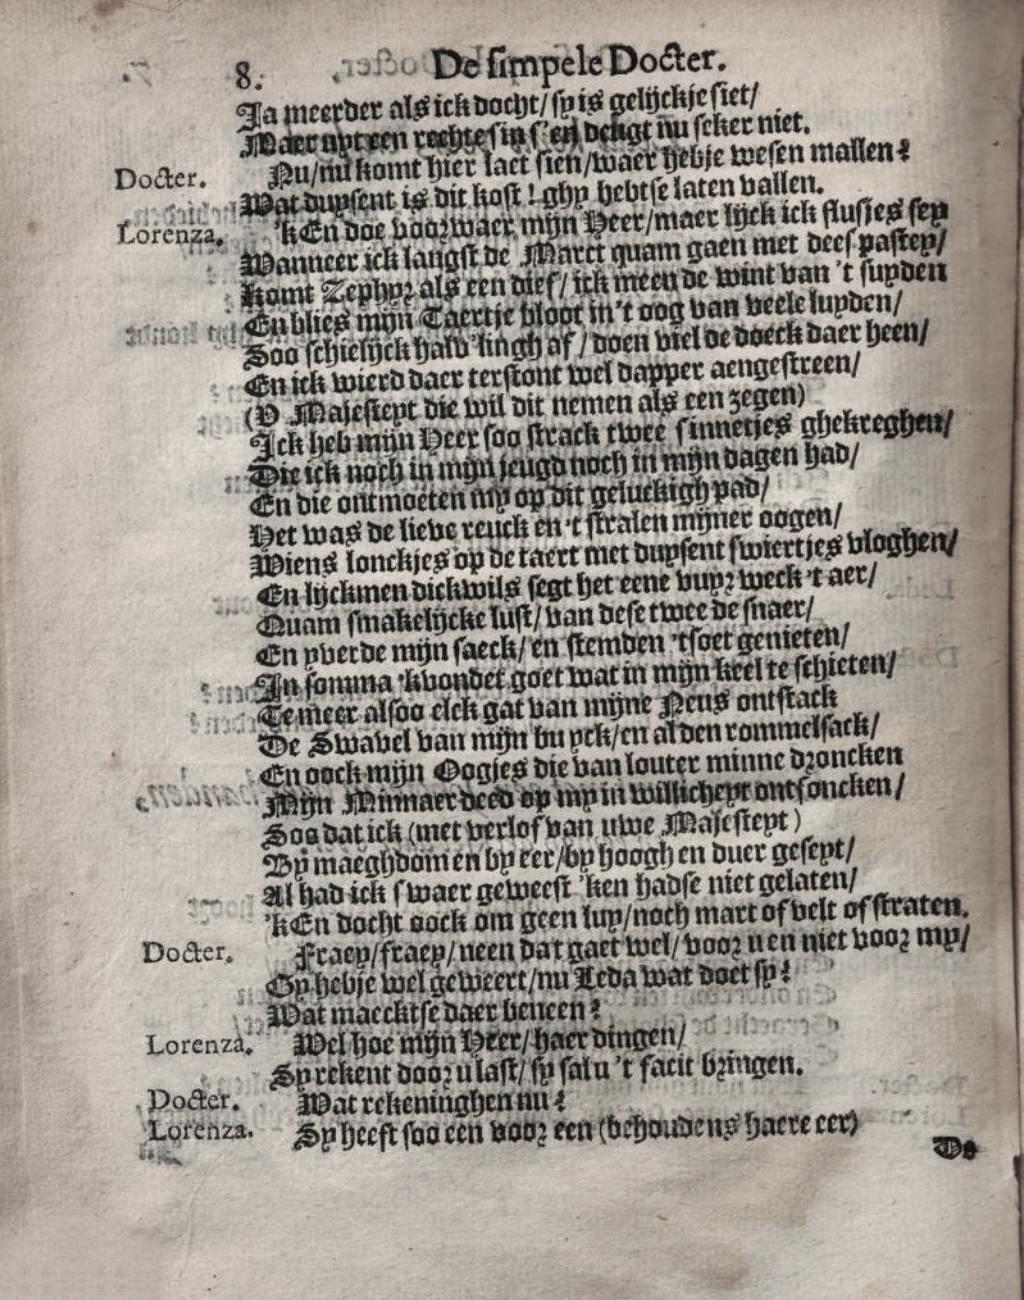 8. De simpele Docter.
Ja meerder als ick docht/ sy is gelijckje siet/
Maer uyt een rechte sin s'en deugt nu seker niet.
Docter. Nu/nu komt hier laet sien/waer hebje wesen mallen?
Wat duysent is dit kost! ghy hebtse laten vallen.
Lorenza. 'kEn doe voorwaer mijn Heer/maer lijck ick flusjes sey
Wanneer ick langst de Marct quam gaen met dees pastey/
Komt Zephyr als een dief/ ick meen de wint van 't suyden
En blies mijn Taertje bloot in 't oog van veele luyden/
Soo schielijck halv'lingh af/ doen viel de doeck daer heen/
En ick wierd daer terstont wel dapper aengestreen/
(V Majesteyt die wil dit nemen als een zegen)
Ick heb mijn Heer soo strack twee sinnetjes ghekreghen/
Die ick noch in mijn jeugd noch in mijn dagen had/
En die ontmoeten my op dit geluckigh pad/
Het was de lieve reuck en 't stralen mijner oogen/
Wiens lonckjes op de taert met duysent swiertjes vloghen/
En lijckmen dickwils segt het eene vuyr weck 't aer/
Quam smakelijcke lust/ van dese twee de snaer/
En yverde mijn saeck/ en stemden 'tsoet genieten/
In somma 'kvondet goet wat in mijn keel te schieten/
Te meer alsoo elck gat van mijne Neus ontstack
De Swavel van mijn buyck/en al den rommelsack/
En oock mijn Oogjes die van louter minne droncken
Mijn Minnaer deed op my in willicheyt ontfoncken/
Soo dat ick (met verlof van uwe Majesteyt)
By maeghdom en by eer/by hoogh en duer geseyt/
Al had ick swaer geweest 'ken hadse niet gelaten/
'kEn docht oock om geen luy/noch mart of velt of straten.
Docter. Fraey/fraey/neen dat gaet wel/ voor u en niet voor my/
Gy hebje wel geweert/nu Leda wat doet sy?
Wat maecktse daer beneen?
Lorenza. Wel hoe mijn Heer/ haer dingen/
Sy rekent door u last/ sy sal u 't facit bringen.
Docter. Wat rekeninghen nu?
Lorenza. Sy heeft soo een voor een (behoudens haere eer)
De